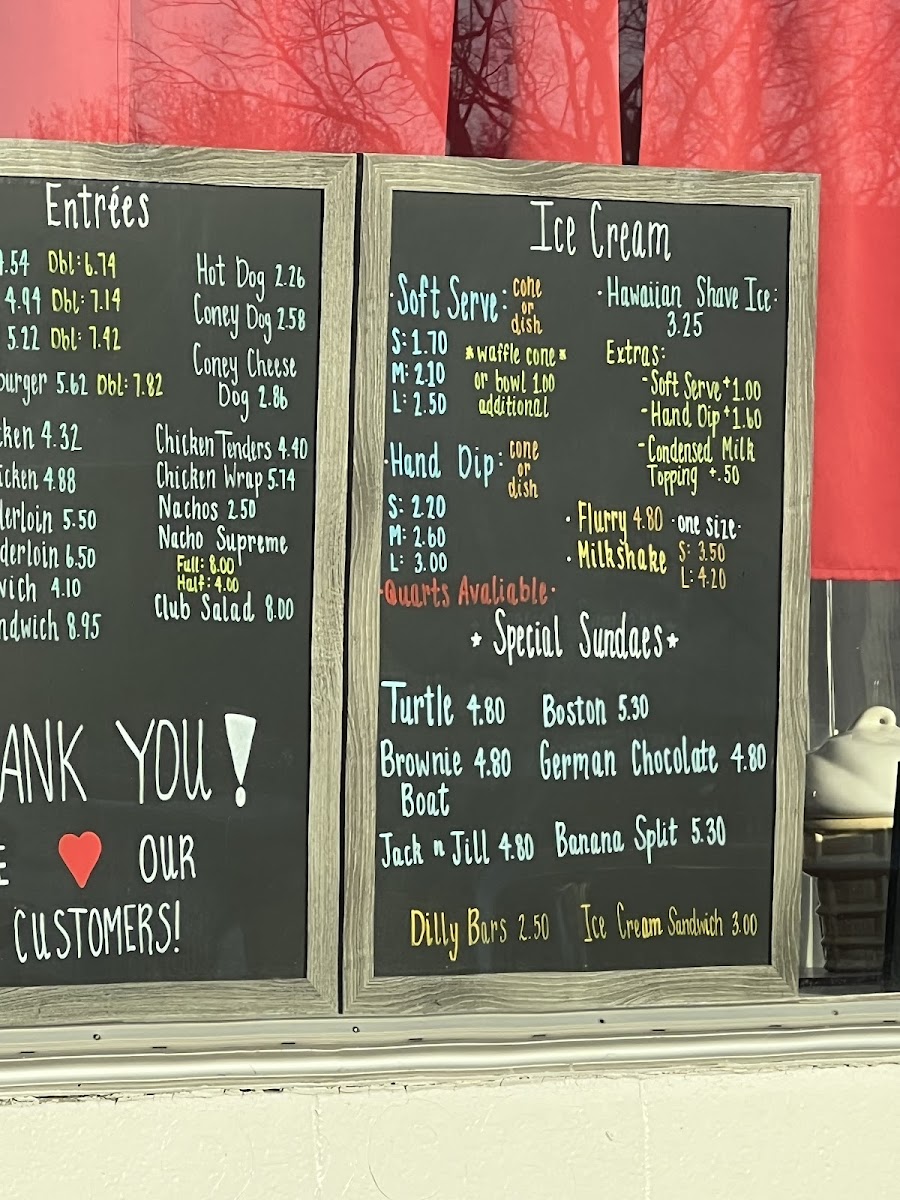 Entrées
Dbl: 6.74
4.94 Dbl: 7.14
5.22 Dbl: 7.42
5.62 Dbl: 7.82
4.32
4.88
5.50
6.50
4.10
8.95
Hot Dog 2.26
Coney Dog 2.58
Coney Cheese
Dog 2.86
Chicken Tenders 4.40
Chicken Wrap 5.74
Nachos 2.50
Nacho Supreme
Full: 8.00
Half: 4.00
Club Salad 8.00
ANK YOU!
E ♥ OUR
CUSTOMERS!
Ice Cream
·Soft Serve: cone
or
dish
S: 1.70
M: 2.10
L: 2.50
*waffle cone*
or bowl 1.00
additional
·Hand Dip: cone
or
dish
S: 2.20
M: 2.60
L: 3.00
·Quarts Avaliable·
·Hawaiian Shave Ice:
3.25
Extras:
-Soft Serve +1.00
-Hand Dip +1.60
-Condensed Milk
Topping +.50
·Flurry 4.80 ·one size·
·Milkshake S: 3.50
L: 4.20
*Special Sundaes*
Turtle 4.80
Brownie 4.80
Boat
Jack n Jill 4.80
Boston 5.30
German Chocolate 4.80
Banana Split 5.30
Dilly Bars 2.50
Ice Cream Sandwich 3.00